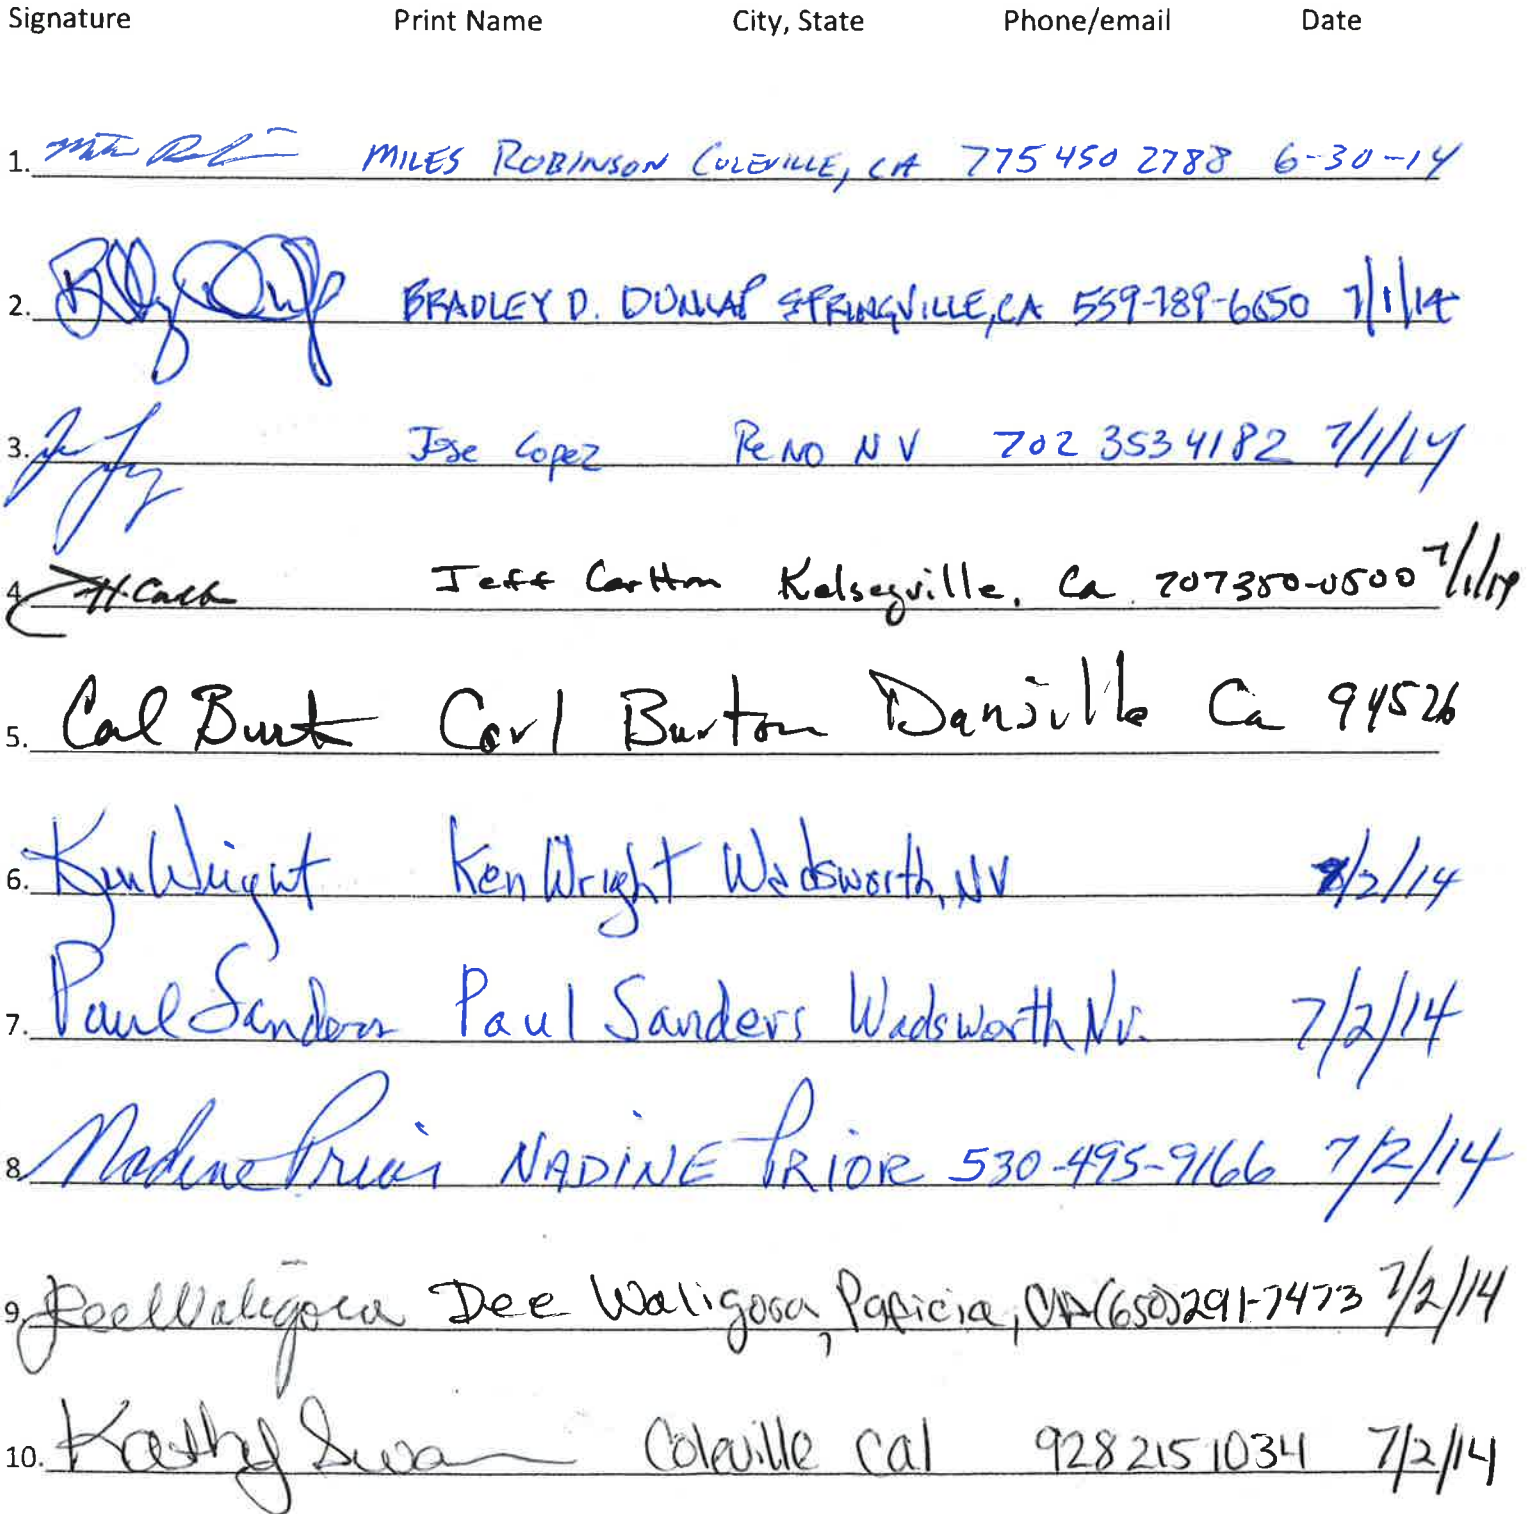 Signature Print Name City, State Phone/email Date
1. MILES ROBINSON COLEVILLE, CA 775 450 2788 6-30-14
2. BRADLEY D. DUNLAP SPRINGVILLE, CA 559-789-6650 7/1/14
3. Jose Lopez Reno NV 702 353 4182 7/1/14
4. Jeff Carlton Kelseyville, Ca. 707 350-0500 7/1/14
5. Carl Burton Danville Ca 94526
6. Ken Wright Ken Wright Wadsworth, NV 7/2/14
7. Paul Sanders Paul Sanders Wadsworth Nv. 7/2/14
8. Nadine Prior NADINE PRIOR 530-495-9166 7/2/14
9. Dee Waligora Dee Waligora, CA (650) 291-7473 7/2/14
10. Kathy Swan Coleville Cal 928 215 1034 7/2/14